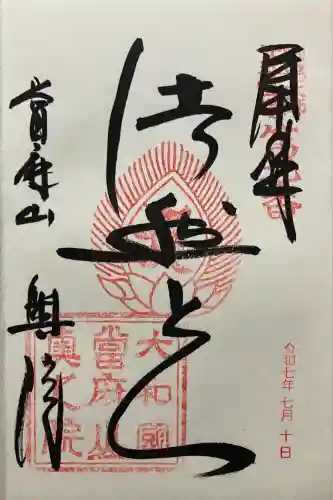 奉拝
法然上人
當麻山 奥院
大和國
當麻山
奥之院
令和七年 七月 十日